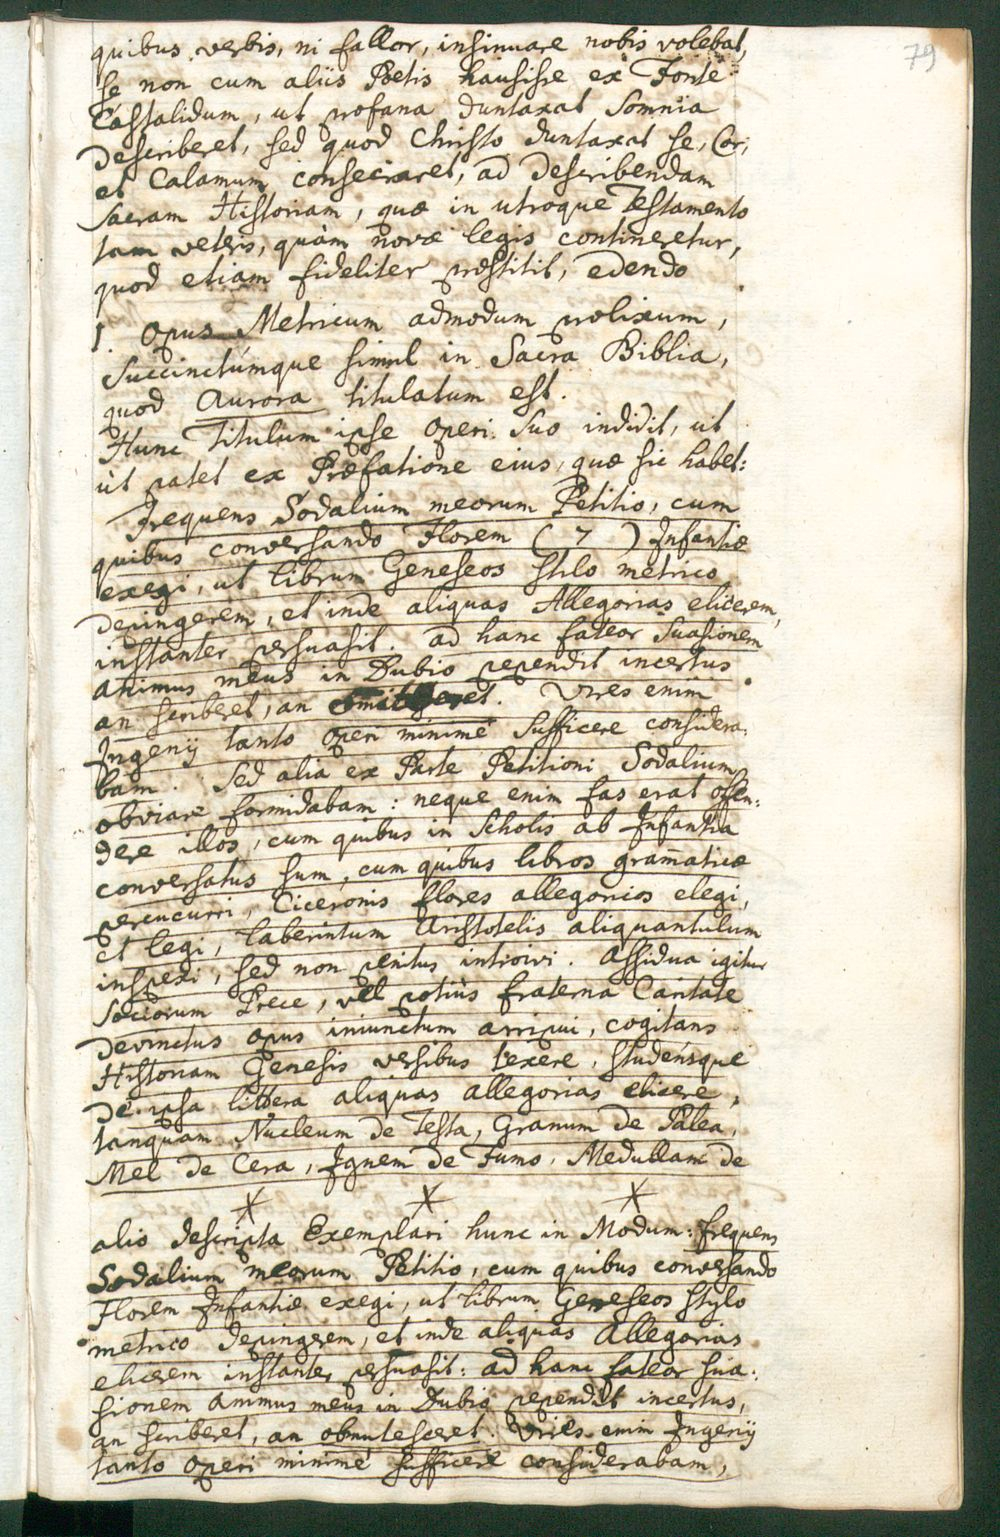 79
quibus verbis, ni fallor, insinuare nobis volebat,
se non cum aliis Poetis hausisse ex Fonte
Castalidum, ut profana duntaxat Somnia
describeret, sed quod Christo duntaxat se, Cor,
et Calamum consecraret, ad describendam
Sacram Historiam, quæ in utroque Testamento
tam veteris, quàm novæ legis contineretur,
quod etiam fideliter præstitit, edendo
1. Opus Metricum admodum prolixum,
Succinctúmque simul in Sacra Biblia,
quod Aurora titulatum est.
Hunc Titulum ipse Operi Suo indidit, ut
ut patet ex Præfatione eius, quæ sic habet:
Frequens Sodalium meorum Petitio, cum
quibus conversando Florem ( 7 ) Infantiæ
exegi, ut librum Geneseos stilo metrico
depingerem, et inde aliquas Allegorias elicerem,
instanter persuasit. ad hanc fateor Suasionem
animus meus in Dubio pependit incertus
an scriberet, an omitteret. Vires enim
Ingenij tanto operi minimè Sufficere considera-
bam. Sed alia ex Parte Petitioni Sodalium
obviare formidabam: neque enim fas erat offen-
dere illos, cum quibus in Scholis ab Infantia
conversatus sum, cum quibus libros gram̄aticæ
percucurri, Ciceronis flores allegoricos elegi,
et legi, laberintum Aristotelis aliquantulum
inspexi, sed non penitus introivi. Assidua igitur
Sociorum Prece, vel potiùs fraterna Caritate
devinctus opus iniunctum arripui, cogitans
Historiam Genesis versibus texere, studensque
de ipsa littera aliquas allegorias elicere,
tanquam Nucleum de Testa, Granum de Palea,
Mel de Cera, Ignem de Fumo, Medullam de
alio descripta Exemplari hunc in Modum: frequens
Sodalium meorum Petitio, cum quibus conversando
Florem Infantiæ exegi, ut librum Geneseos stylo
metrico depingerem, et inde aliquas Allegorias
elicerem instanter persuasit: ad hanc fateor sua-
sionem animus meus in Dubio pependit incertus,
an scriberet, an obmutesceret. Vires enim Ingenij
tanto operi minimè sufficere considerabam,